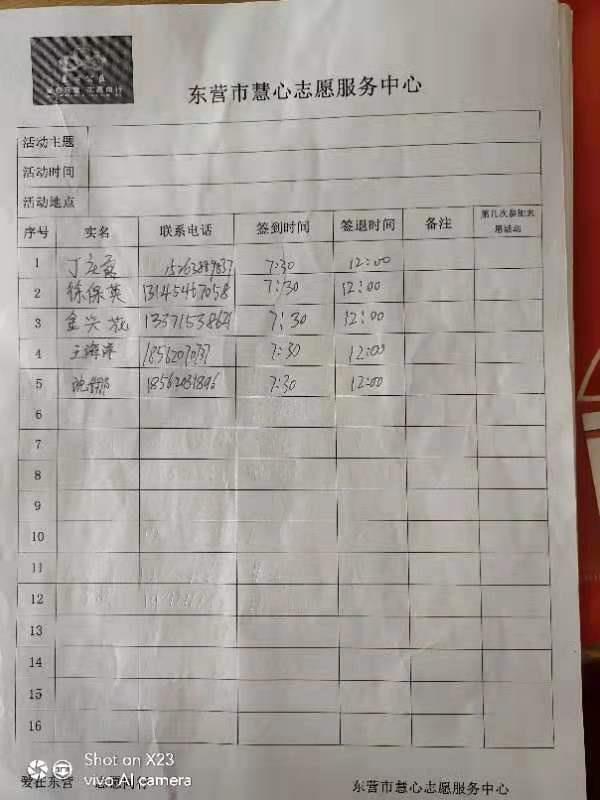 东营市慧心志愿服务中心
活动主题
活动时间
活动地点
序号 实名 联系电话 签到时间 签退时间 备注 第几次参加志愿活动
1 7:30 12:00
2 徐保英 13145467058 7:30 12:00
3 金兴花 7:30 12:00
4 王海涛 7:30 12:00
5 7:30 12:00
6
7
8
9
10
11
12
13
14
15
16
Shot on X23
vivo AI camera
爱在东营
东营市慧心志愿服务中心